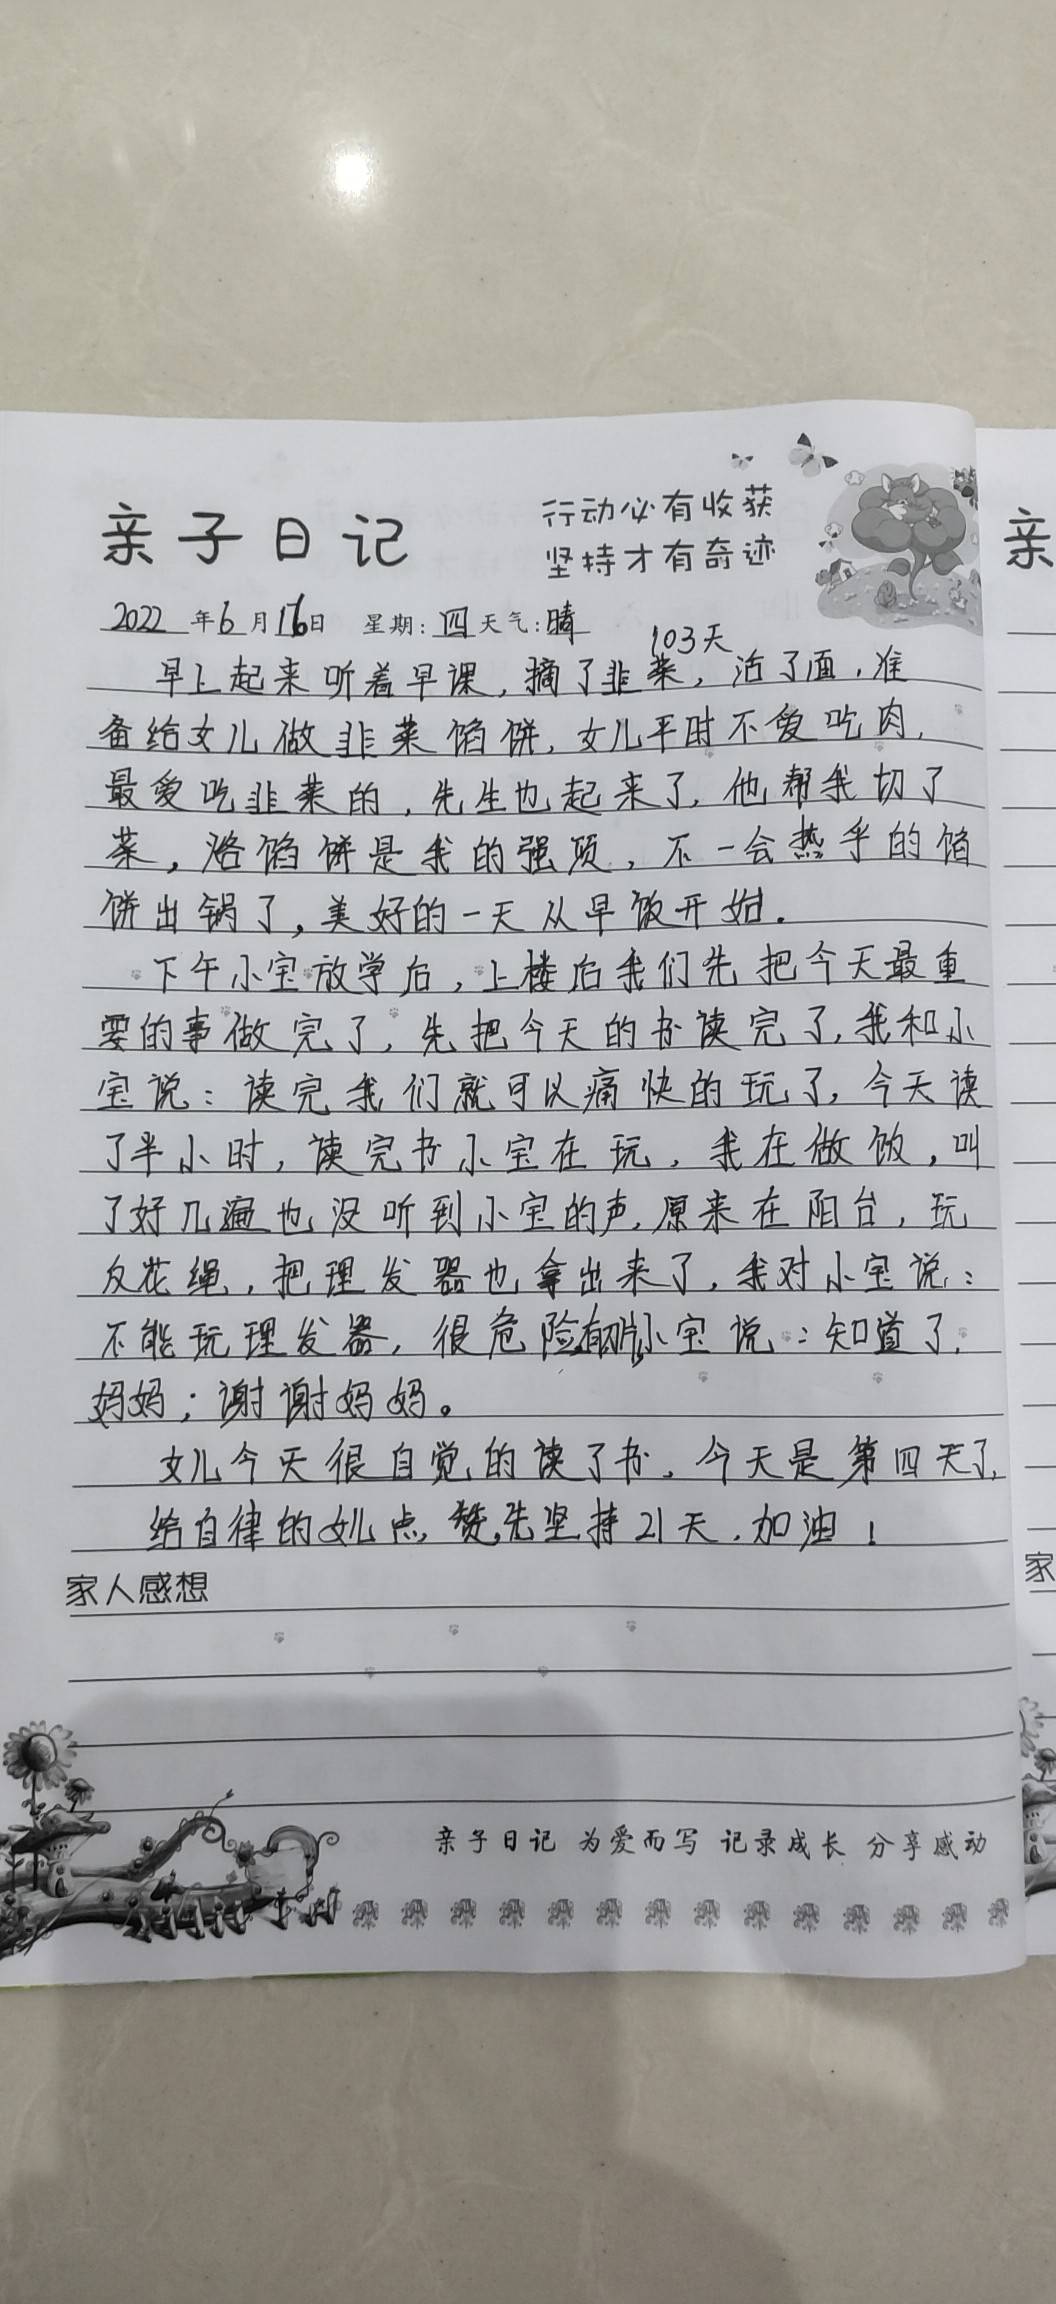 亲子日记
行动必有收获
坚持才有奇迹
2022年6月16日 星期:四 天气:晴
103天
早上起来听着早课，摘了韭菜，活了面，准
备给女儿做韭菜馅饼，女儿平时不爱吃肉，
最爱吃韭菜的，先生也起来了，他帮我切了
菜，洛馅饼是我的强项，不一会热乎的馅
饼出锅了，美好的一天从早饭开始。
下午小宝放学后，上楼后我们先把今天最重
要的事做完了，先把今天的书读完了，我和小
宝说：读完我们就可以痛快的玩了，今天读
了半小时，读完书小宝在玩，我在做饭，叫
了好几遍也没听到小宝的声，原来在阳台，玩
反花绳，把理发器也拿出来了，我对小宝说：
不能玩理发器，很危险有刀片，小宝说：知道了，
妈妈；谢谢妈妈。
女儿今天很自觉的读了书，今天是第四天了，
给自律的女儿点赞，先坚持21天，加油！
家人感想
亲子日记 为爱而写 记录成长 分享感动
亲
家